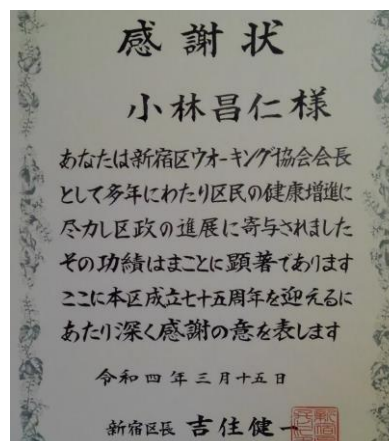 感謝状
小林昌仁様
あなたは新宿区ウオーキング協会会長
として多年にわたり区民の健康増進に
尽力し区政の進展に寄与されました
その功績はまことに顕著であります
ここに本区成立七十五周年を迎えるに
あたり深く感謝の意を表します
令和四年三月十五日
新宿区長 吉住健一